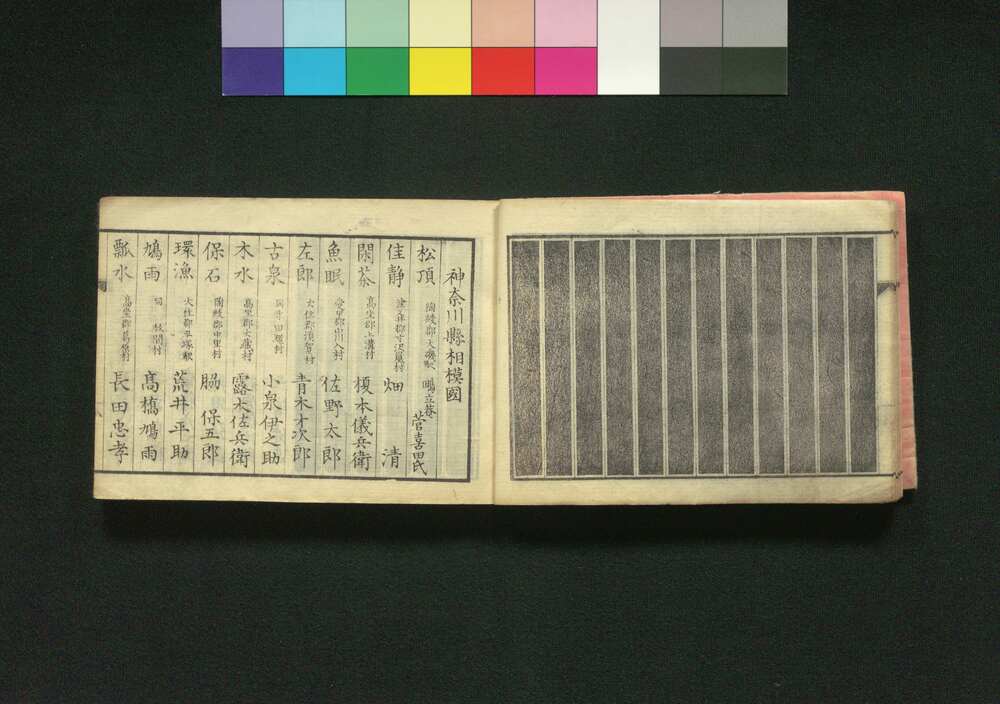 神奈川縣相模國
松頂 淘綾郡大磯駅 鴫立菴 菅喜田民
佳静 津久井郡寸沢嵐村 畑 清
閑茶 高坐郡上溝村 榎本儀兵衛
魚眠 愛甲郡川入村 佐野太郎
左郎 大住郡須賀村 青木才次郎
古泉 同 田村 小泉伊之助
木水 高坐郡大蔵村 露木佐兵衛
保石 淘綾郡中里村 脇 保五郎
環漁 大住郡平塚駅 荒井平助
鳩雨 同 村 高橋鳩雨
瓢水 高坐郡 村 長田忠孝